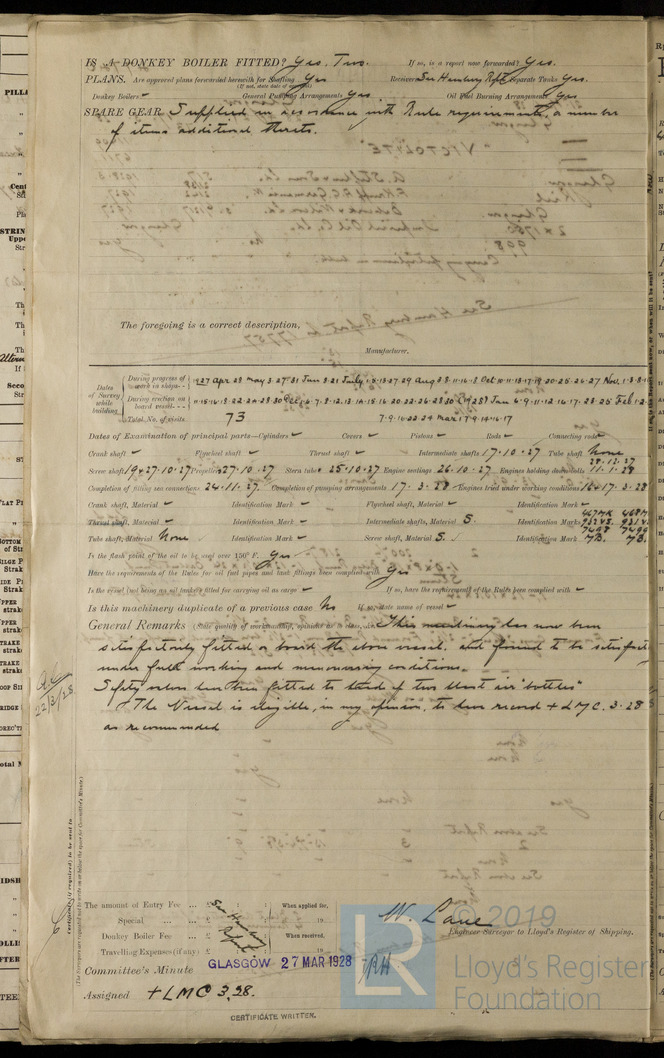 IS A DONKEY BOILER FITTED? Yes. Two. If so, is a report now forwarded? Yes.
PLANS. Are approval plans forwarded herewith for Shafting Yes Receivers See Hamburg Rpt Separate Tanks Yes.
(If not, state date of approval)
Donkey Boilers ✓ General Pumping Arrangements Yes. Oil Fuel Burning Arrangements Yes.
SPARE GEAR. Supplied in accordance with Rule requirements, a number
of items additional thereto.
The foregoing is a correct description,
Manufacturer.
Dates of Survey while building
During progress of work in shops - - 1927 Apr 28 May 3.27.31 Jun 8.21 July 1.5.13.27.29 Aug 23.11.16.18 Oct 10.11.13.17.19.20.25.26.27 Nov. 1.3.8.10
During erection on board vessel - - - 11.15.16.18.22.24.28.30 Dec 6.7.8.12.13.14.15.16.20.22.26.28.30 (1928) Jan 6.9.11.12.16.17.23.25 Feb 1.2
Total No. of visits 73 7.9.16.22.24 Mar 1.7.9.14.16.17
Dates of Examination of principal parts—Cylinders ✓ Covers ✓ Pistons ✓ Rods ✓ Connecting rods ✓
Crank shaft ✓ Flywheel shaft ✓ Thrust shaft ✓ Intermediate shafts 17.10.27 Tube shaft None
Screw shaft 19+27.10.27 Propeller 27.10.27 Stern tube 25.10.27 Engine seatings 26.10.27 Engines holding down bolts 28.12.27 11.1.28
Completion of fitting sea connections 24.11.27 Completion of pumping arrangements 17.3.28 Engines tried under working conditions 16+17.3.28
Crank shaft, Material ✓ Identification Mark ✓ Flywheel shaft, Material ✓ Identification Mark ✓
Thrust shaft, Material ✓ Identification Mark ✓ Intermediate shafts, Material S. Identification Marks
Tube shaft, Material None. Identification Mark ✓ Screw shaft, Material S. ✓ Identification Mark 7B. 7B.
Is the flash point of the oil to be used over 150° F. Yes
Have the requirements of the Rules for oil fuel pipes and tank fittings been complied with Yes
Is the vessel (not being an oil tanker) fitted for carrying oil as cargo ✓ If so, have the requirements of the Rules been complied with ✓
Is this machinery duplicate of a previous case No If so, state name of vessel ✓
General Remarks (State quality of workmanship, opinions as to class, &c. This machinery has now been
satisfactorily fitted on board the above vessel, and found to be satisfact
under full working and manoeuvring conditions.
Safety valves have been fitted to thead of two blast air "bottles"
The Vessel is eligible, in my opinion, to have record + LMC. 3.28
as recommended
22/3/28
Certificate (if required) to be sent to
(The Surveyors are requested not to write on or below the space for Committee's Minute.)
The amount of Entry Fee ... £ : : When applied for,
Special ... ... £ See Hamburg Report 19
Donkey Boiler Fee ... £ When received,
Travelling Expenses (if any) £ 19
W. Lane
Engineer Surveyor to Lloyd's Register of Shipping.
Committee's Minute GLASGOW 27 MAR 1928
Assigned + LMC 3.28.
CERTIFICATE WRITTEN.
LR
© 2019
Lloyd's Register
Foundation